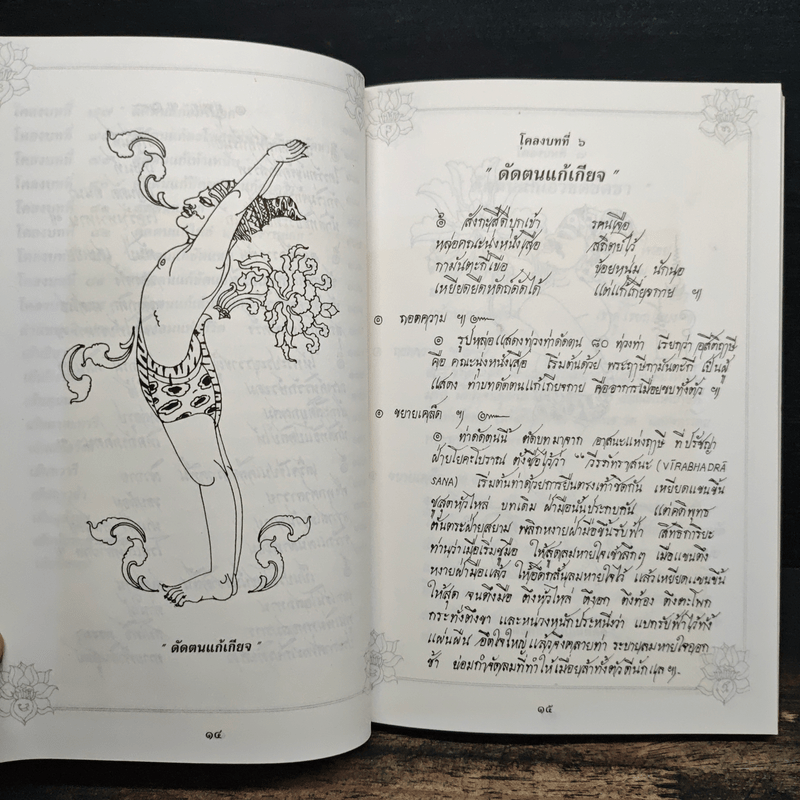 " ดัดตนแก้เกียจ "
๑๔
โคลงบทที่ ๖
" ดัดตนแก้เกียจ "
๏ สังกะสีดีบุกเข้า รคนเจือ
หล่อคณะนุ่งหนังเสือ สถิตย์ไว้
กามันตะกีเขือ ข้อยหนุ่ม นักนอ
เหยียดยืดหัดถ์ดัดได้ แต่แก้เกียจกาย ฯ
๏ ถอดความ ฯ
๑ รูปหล่อแสดงท่วงท่าดัดตน ๘๐ ท่วงท่า เรียกว่า อสีตฤๅษี
คือ คณะนุ่งหนังเสือ เริ่มต้นด้วย พระฤๅษีกามันตะกี เป็นผู้
แสดง ท่าบทดัดตนแก้เกียจกาย คืออาการเมื่อยขบทั้งตัว ฯ
๏ ขยายเคล็ด ฯ
๑ ท่าดัดตนนี้ ตัดบทมาจาก อาสนะแห่งฤๅษี ที่ปรัชญา
ฝ่ายโยคะโบราณ ตั้งชื่อไว้ว่า "วีรภัทราสนะ (VĪRABHADRĀ
SANA) เริ่มต้นท่าด้วยการยืนตรงเท้าชิดกัน เหยียดแขนขึ้น
ชูสุดหัวไหล่ บทเดิม ฝ่ามือนั้นประกบกัน แต่คติพุทธ
ตันตระฝ่ายสยาม พลิกหงายฝ่ามือขึ้นรับฟ้า สิทธิการิยะ
ท่านว่าเมื่อเริ่มชูมือ ให้สูดลมหายใจเข้าลึกๆ เมื่อแขนตึง
หงายฝ่ามือแล้ว ให้อึดกลั้นลมหายใจไว้ แล้วเหยียดแขนขึ้น
ให้สุด จนตึงมือ ตึงหัวไหล่ ตึงอก ตึงท้อง ตึงตะโพก
กระทั่งตึงขา และหน่วงหนักประหนึ่งว่า แบกรับฟ้าไว้ทั้ง
แผ่นผืน อึดใจใหญ่ แล้วจึงคลายท่า ระบายลมหายใจออก
ช้า ย่อมกำจัดลมที่ทำให้เมื่อยล้าทั้งตัวดีนักแล ฯ
๑๕